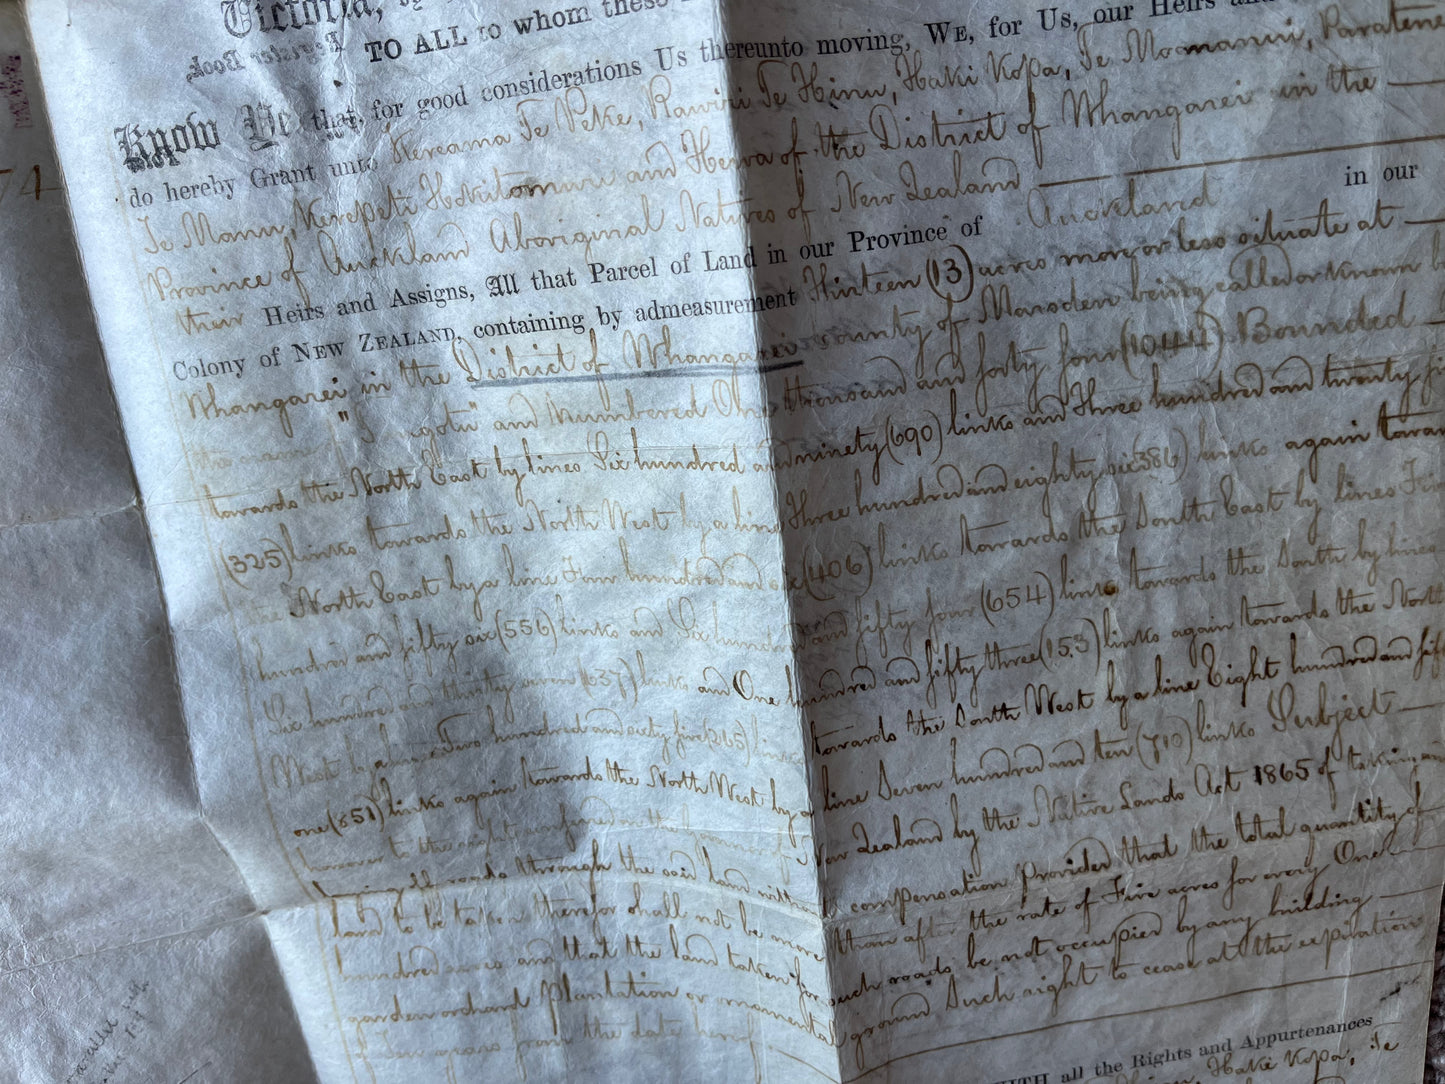 Victoria, by
TO ALL to whom these
Register Book
Know Ye that, for good considerations Us thereunto moving, WE, for Us, our Heirs and
do hereby Grant unto Kereama Te Peke, Rawiri Te Hinu, Haki Kopa, Te Moananui, Paratene
Te Manu, Kerepeti Hokitomuri and Hewa of the District of Whangarei in the
Province of Auckland Aboriginal Natives of New Zealand
their Heirs and Assigns, All that Parcel of Land in our Province of Auckland in our
Colony of NEW ZEALAND, containing by admeasurement Thirteen (13) acres more or less situate at
Whangarei in the District of Whangarei County of Marsden being called or known
the name and numbered One thousand and forty four (1044) Bounded
towards the North East by lines Six hundred and ninety (690) links and Three hundred and twenty
(325) links towards the North West by a line Three hundred and eighty six (386) links again
the North East by a line Four hundred and six (406) links towards the South East by lines
hundred and fifty six (556) links and Six hundred and fifty four (654) links towards the South by lines
Six hundred and thirty seven (637) links and One hundred and fifty three (153) links again towards the North
West by a line Two hundred and sixty five (265) links towards the South West by a line Eight hundred and
one (851) links again towards the North West by a line Seven hundred and ten (710) links Subject
however to the right Zealand by the Native Lands Act 1865 of taking
roads through the said land without compensation provided that the total quantity of
land to be taken therefor shall not be more than after the rate of Five acres for every One
hundred acres and that the land taken for such roads be not occupied by any building
garden orchard plantation or ornamental ground Such right to cease at the expiration
of Ten years from the date hereof.
WITH all the Rights and Appurtenances
Haki Kopa, Te
74